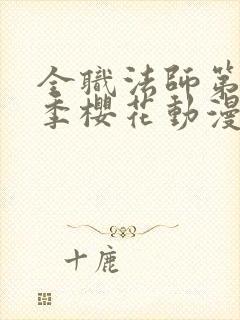 全職法師第
季櫻花動漫
十鹿